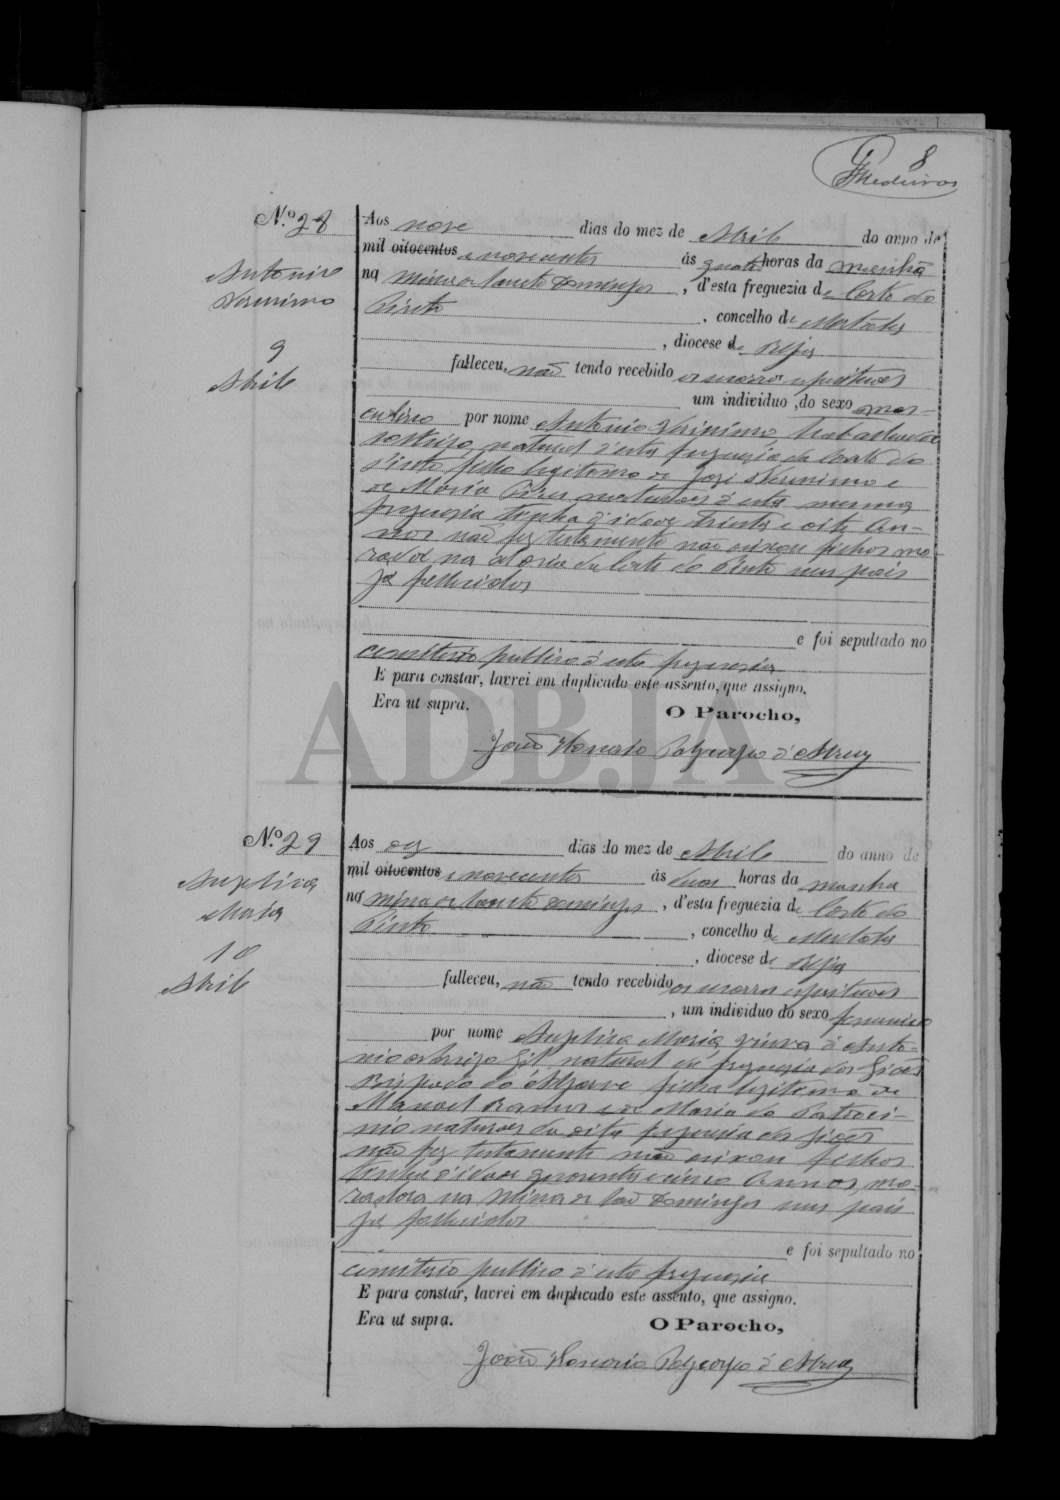 8
Medeiros
N.º 28
Antonio
Jeronimo
9
Abril
Aos nove dias do mez de Abril do anno de
mil oitocentos e novecentos ás quatro horas da manhã
na Mina de Sam Domingos, d'esta freguezia de Corte do
Pinto, concelho de Mertola,
, diocese de Beja
falleceu, não tendo recebido os socorros espirituaes
um individuo, do sexo mas-
culino por nome Antonio Jeronimo, trabalhador
natural d'esta freguezia da Corte do
Pinto, filho legitimo de José Jeronimo e
de Maria naturaes d'esta mesma
freguezia tinha d'idade trinta e oito an-
nos não fez testamento não deixou filhos mo-
rador na aldeia da Corte do Pinto seus pais
já fallecidos
e foi sepultado no
cemiterio publico d'esta freguezia
E para constar, lavrei em duplicado este assento, que assigno.
Era ut supra.
O Parocho,
João Honorio d'Abreu
ADBJA
N.º 29
Angelica
Maria
10
Abril
Aos dez dias do mez de Abril do anno de
mil oitocentos e novecentos ás duas horas da manhã
na Mina de Sam Domingos, d'esta freguezia de Corte do
Pinto, concelho de Mertola
, diocese de Beja
falleceu, não tendo recebido os socorros espirituaes
, um individuo do sexo femenino
por nome Angelica Maria viuva d'Anto-
nio Gil natural da freguezia dos Giões
Bispado do Algarve filha legitima de
Manoel Ramos e de Maria do Patroci-
nio naturaes da dita freguezia dos Giões
não fez testamento não deixou filhos
tinha d'idade quarenta e cinco annos, mo-
radora na Mina de Sam Domingos seus pais
já fallecidos
e foi sepultado no
cemiterio publico d'esta freguezia
E para constar, lavrei em duplicado este assento, que assigno.
Era ut supra.
O Parocho,
João Honorio d'Abreu